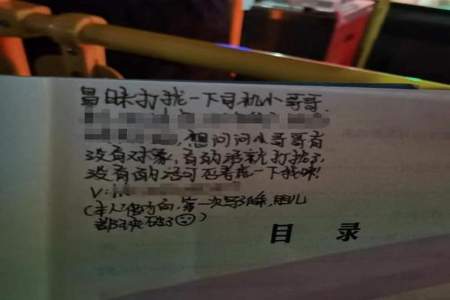 冒昧打扰一下司机小哥哥
想问问小哥哥有
没有对象,有的话就打扰了,
没有的话可否考虑一下我呀!
V:
(本人很内向,第一次写纸条,
都快破了☹)
目 录